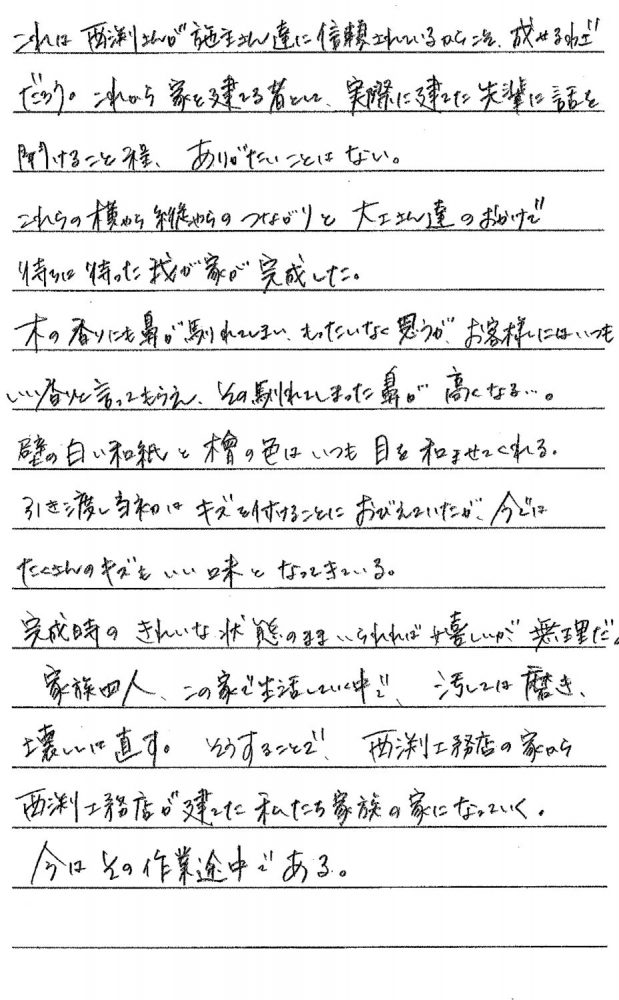 これは西渕さんが施主さん達に信頼されているからこそ、成せるわざ
だろう。これから家を建てる者として、実際に建てた先輩に話を
聞けること程、ありがたいことはない。
これらの横から縦からのつながりと大工さん達のおかげで
待ちに待った我が家が完成した。
木の香りにも鼻が馴れてしまい、もったいなく思うが、お客様にはいつも
いい香りと言ってもらえ、その馴れてしまった鼻が高くなる…。
壁の白い和紙と檜の色はいつも目を和ませてくれる。
引き渡し当初はキズを付けることにおびえていたが、今では
たくさんのキズもいい味となってきている。
完成時のきれいな状態のままいられれば嬉しいが無理だ。
家族四人、この家で生活していく中で、汚しては磨き、
壊しては直す。そうすることで、西渕工務店の家から
西渕工務店が建てた私たち家族の家になっていく。
今はその作業途中である。